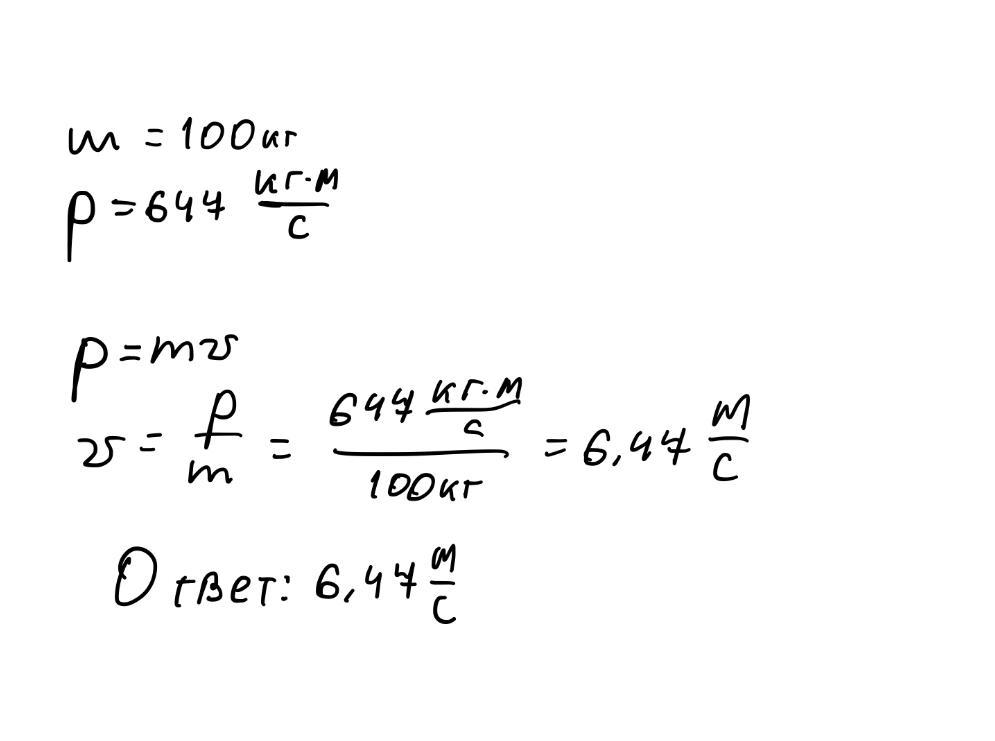 m = 100кг
p = 647 кг·м/с
p = mv
v = p/m = 647 кг·м/с / 100кг = 6,47 м/с
Ответ: 6,47 м/с